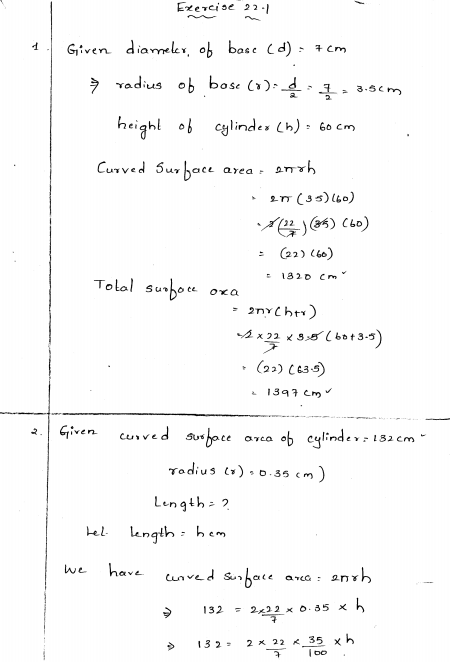 Exercise 22.1
1 Given diameter, of base (d) = 7 cm
⇒ radius of base (r) = d/2 = 7/2 = 3.5 cm
height of cylinder (h) = 60 cm
Curved Surface area = 2πrh
= 2π (3.5) (60)
= 2 (22/7) (3.5) (60)
= (22) (60)
= 1320 cm²
Total surface area
= 2πr (h+r)
= 2 × 22/7 × 3.5 (60+3.5)
= (22) (63.5)
= 1397 cm²
2. Given curved surface area of cylinder = 132 cm²
radius (r) = 0.35 cm)
Length = ?
Let length = h cm
We have curved surface area = 2πrh
⇒ 132 = 2×22/7 × 0.35 × h
⇒ 132 = 2 × 22/7 × 35/100 × h